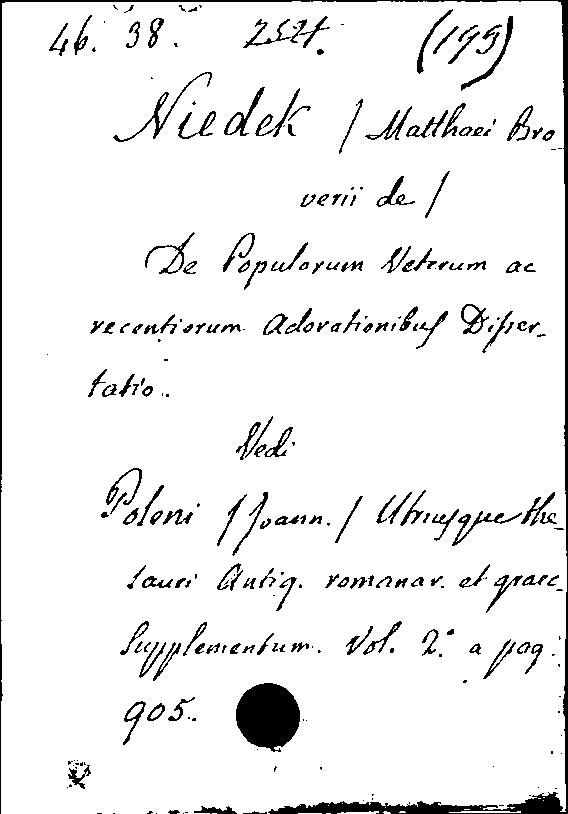 46. 38. 2521. (199)
Niedek / Matthaei Bro-
verii de /
De Populorum Veterum ac
recentiorum Adorationibus Disser-
tatio.
Vedi
Poleni / Joann. / Utriusque the-
sauri Antiq. romanar. et graec.
Supplementum. Vol. 2.° a pag.
905.